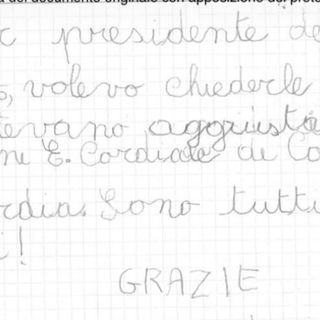 del documento originale con apposizione del
presidente de
, volevo chiederle
tevano aggiusta
ni E. Cordiale di Co
rdia. Sono tutti
i!
GRAZIE